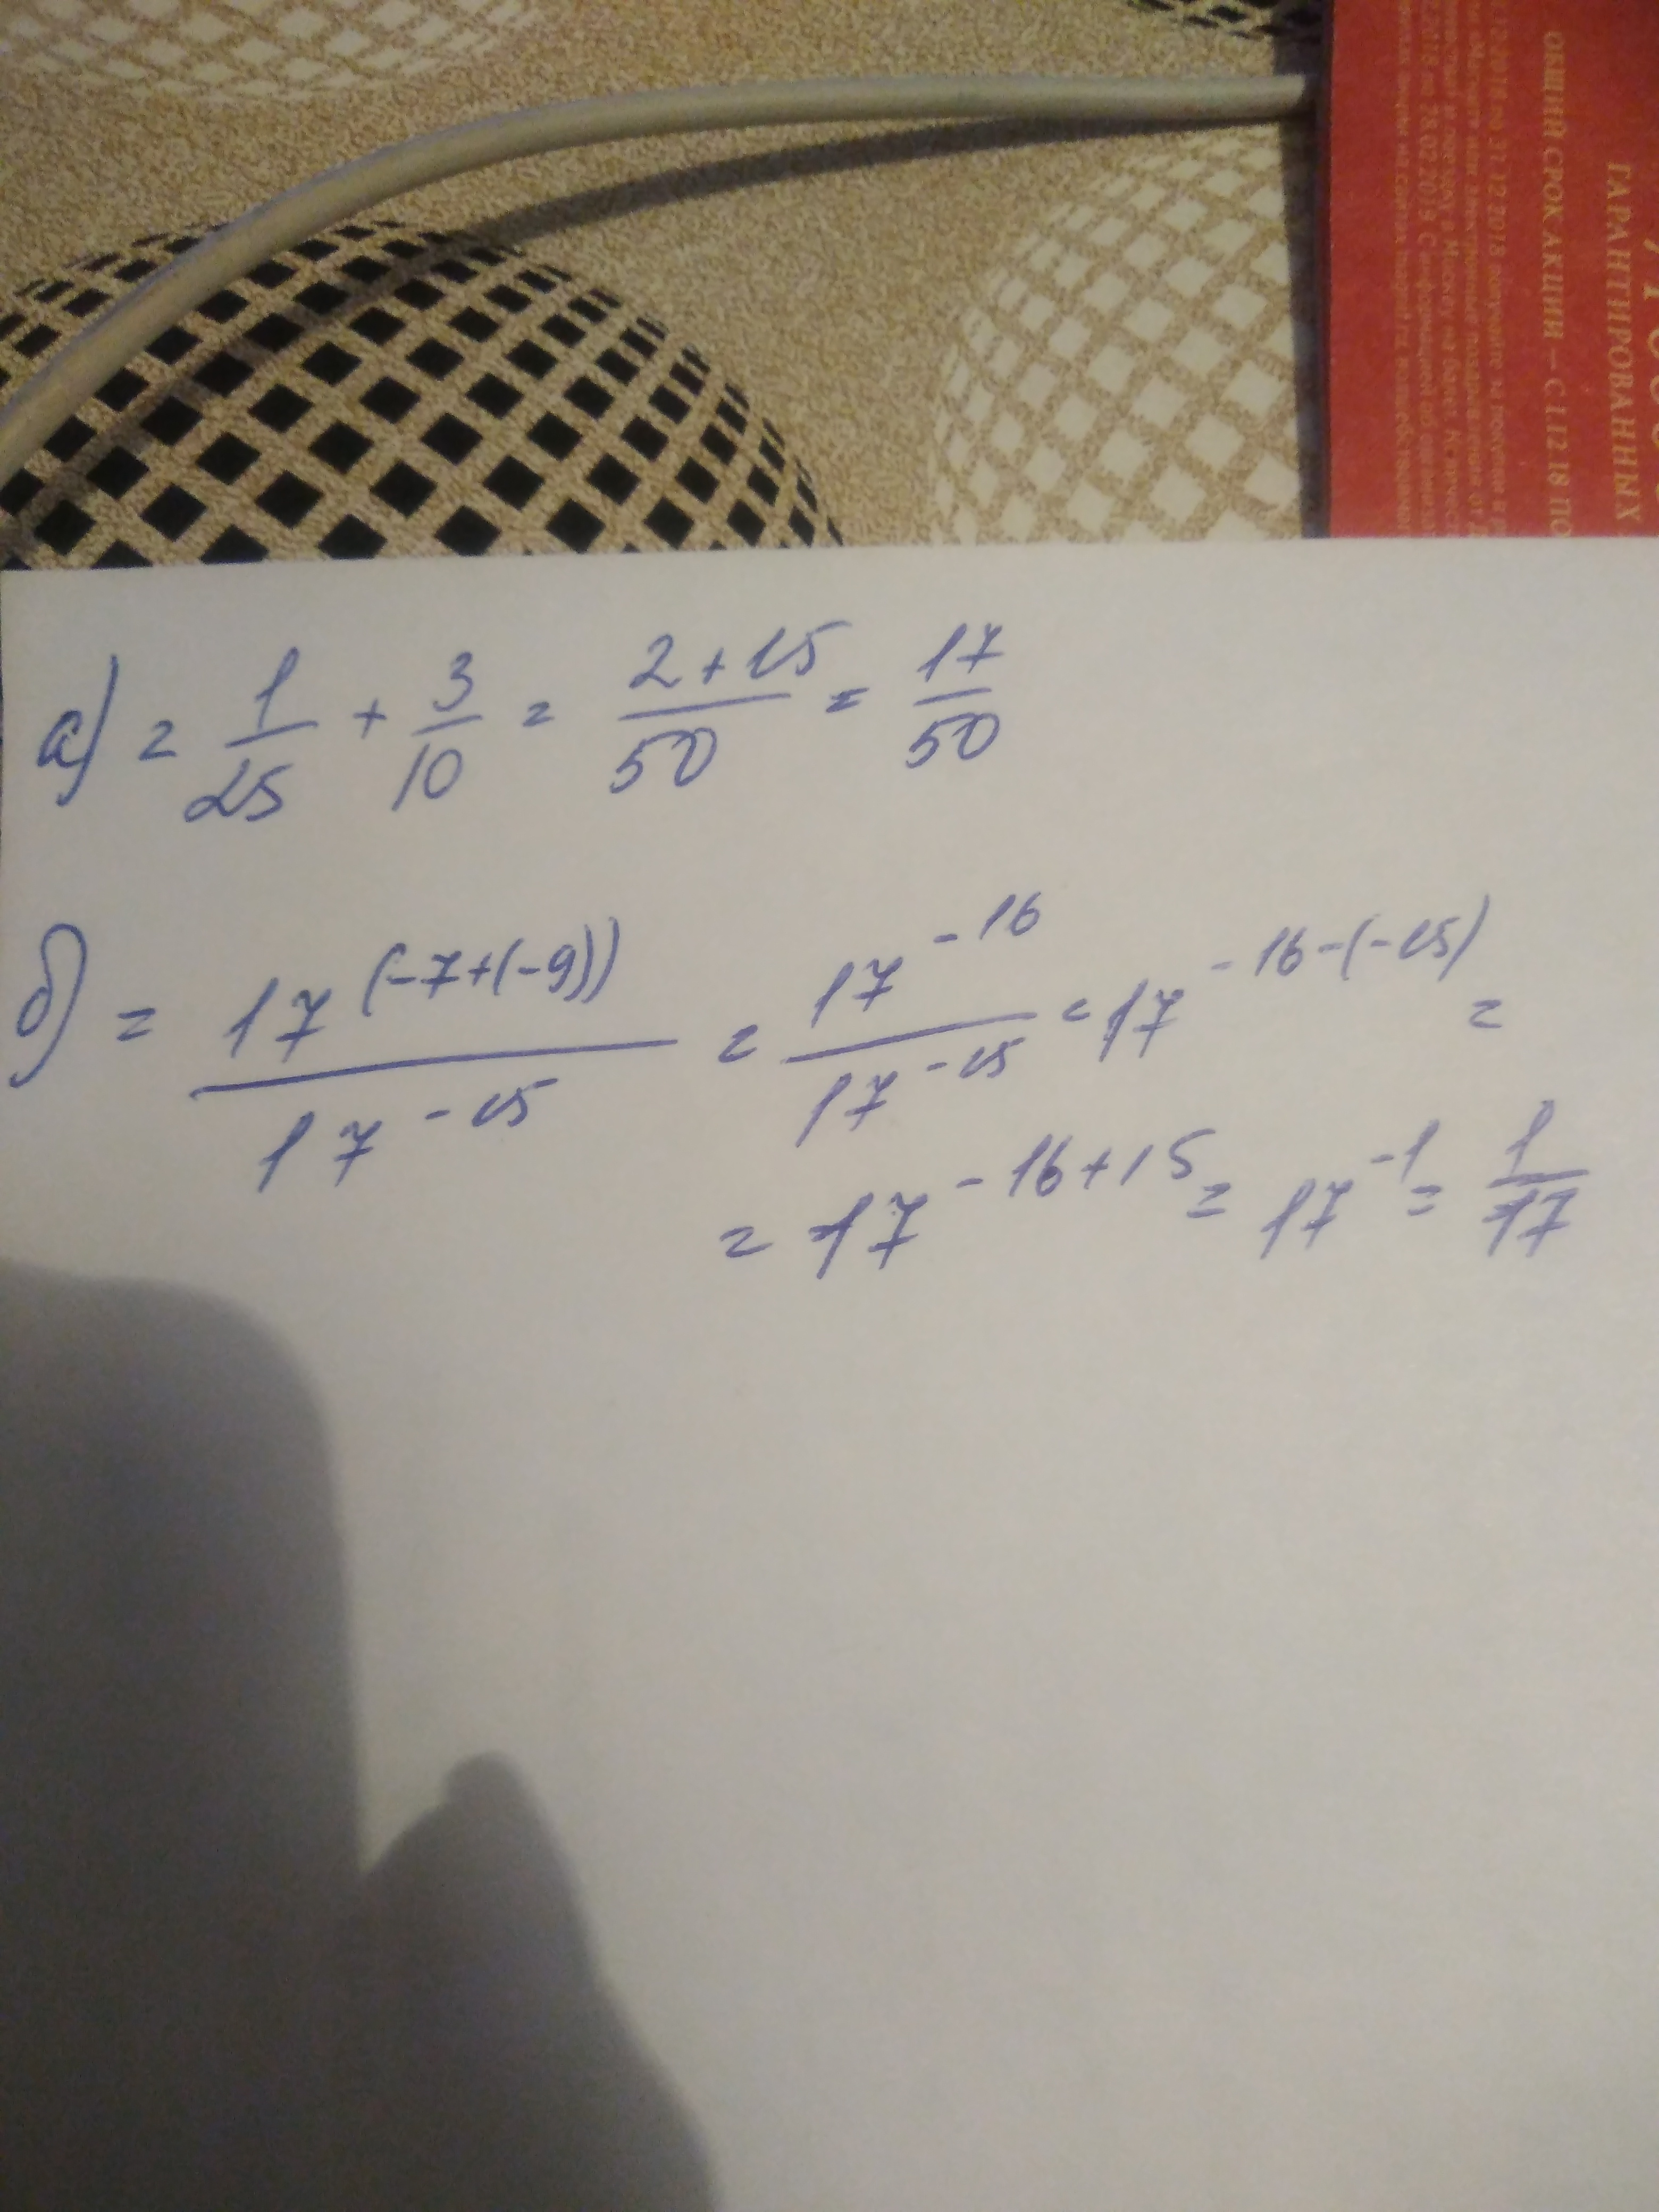 ГАРАНТИРОВАННЫХ
ОБЩИЙ СРОК АКЦИИ – С 1.12.18 ПО
а) = 1/25 + 3/10 = (2+15)/50 = 17/50
б) = 17^(-7+(-9)) / 17^-15 = 17^-16 / 17^-15 = 17^-16-(-15) =
= 17^-16+15 = 17^-1 = 1/17